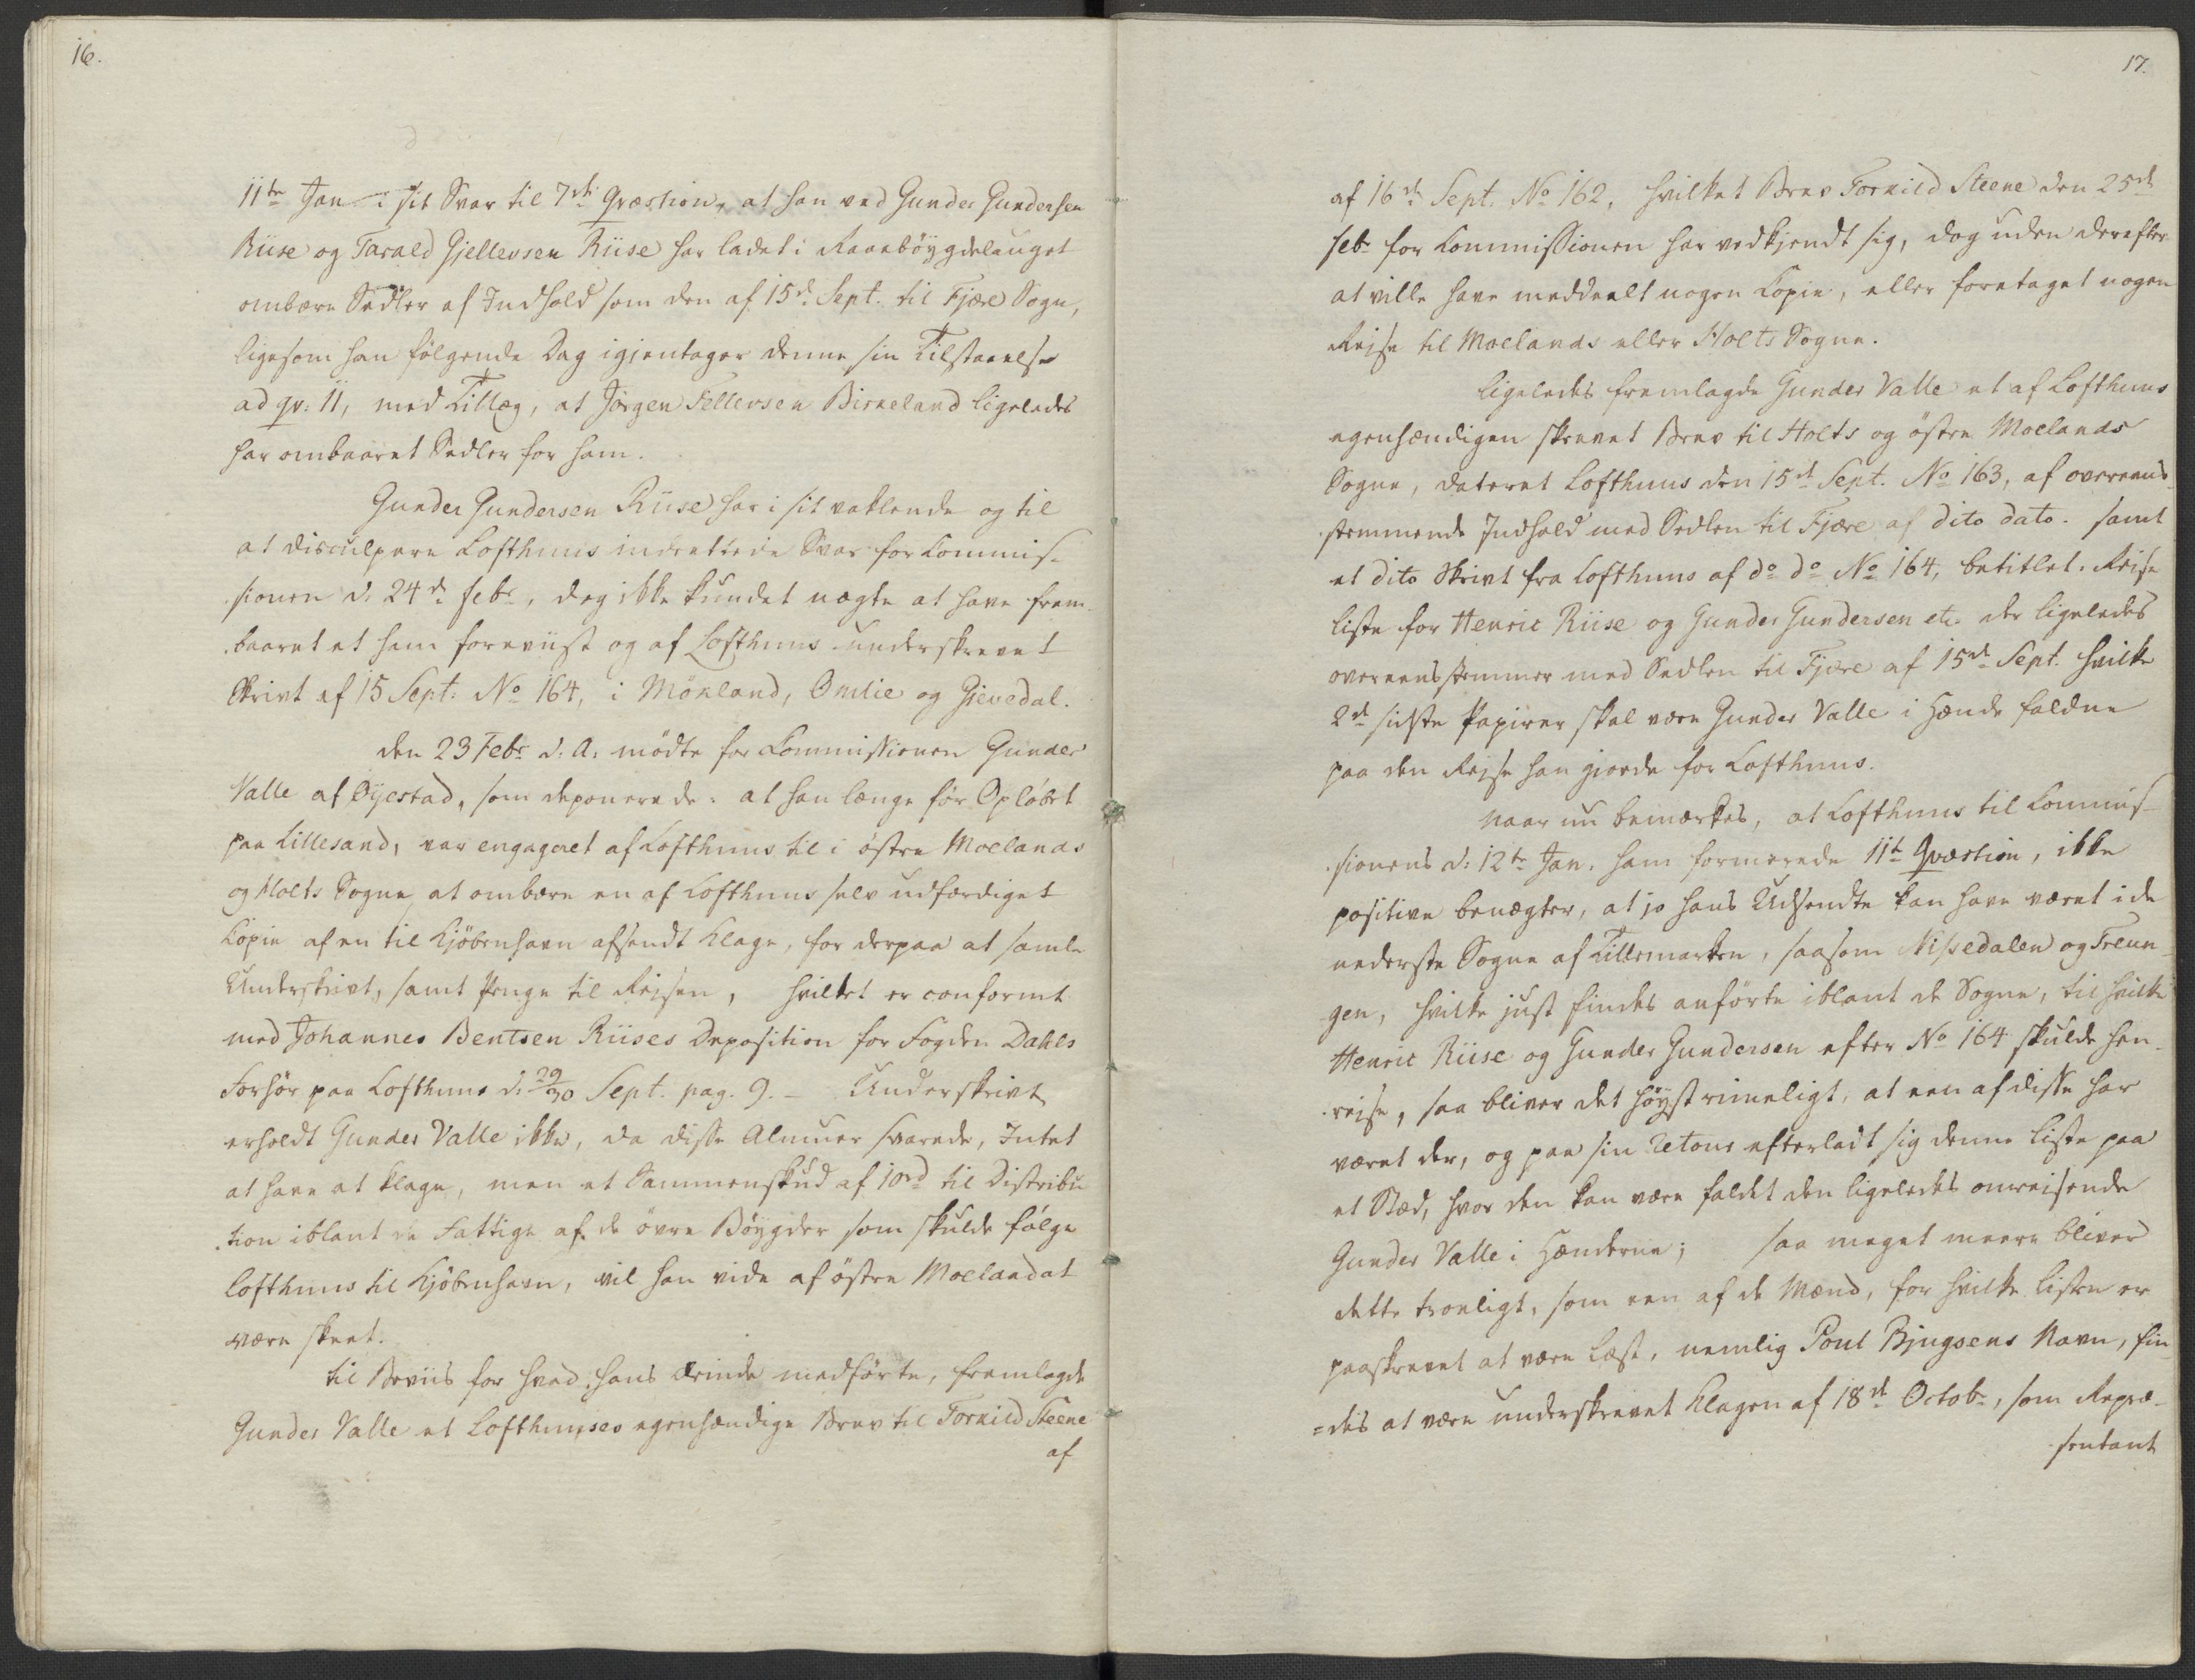 16.
11te Jan. i sit Svar til 7de Qvæstion, at han ved Gunder Gundersen
Riise og Tarald Gjellevsen Riise har ladet i Raaebøygdelauget
ombære Sedler af Indhold som den af 15d. Sept. til Fjære Sogn,
ligesom han følgende Dag igjentager denne sin Tilstaaelse
ad qv: 11, med Tillæg, at Jørgen Tellevsen Birkeland ligeledes
har ombaaret Sedler for ham.
Gunder Gundersen Riise har i sit vaklende og til
at disculpere Lofthuus indrettede Svar for Commis-
sionen d. 24de Febr., dog ikke kundet nægte at have frem-
baaret et ham foreviist og af Lofthuus underskrevet
Skrivt af 15 Sept: No 164, i Mökland, Omlie og Gievedal.
Den 23 Febr. d. A. mödte for Commissionen Gunder
Valle af Öyestad, som deponerede: at han længe för Opløbet
paa Lillesand, var engageret af Lofthuus til i östre Moelands
og Holts Sogne, at ombære en af Lofthuus selv udfærdiget
Copie af en til Kjöbenhavn afsendt Klage, for derpaa at samle
Underskrivt, samt Penge til Rejsen, hvilket er conformt
med Johannes Bentsen Riises Deposition for Fogden Dahls
Forhör paa Lofthuus d. 29/30 Sept. pag. 9. – Underskrivt
erholdt Gunder Valle ikke, da disse Almuer svarede, Intet
at have at klage, men et Sammenskud af 10rd til Distribu-
tion iblant de Fattige af de övre Böygder som skulde følge
Lofthuus til Kjöbenhavn, vil han vide af östre Moeland at
være skeet.
Til Beviis for hvad hans Ærinde medförte, fremlagde
Gunder Valle et Lofthuuses egenhændige Brev til Torkild Steene
af
17.
af 16de Sept. No 162, hvilket Brev Torkild Steene den 25de
Febr for Commissionen har vedkjendt sig, dog uden derefter
at ville have meddeelt nogen Copie, eller foretaget nogen
Rejse til Moelands eller Holts Sogne.
Ligeledes fremlagde Gunder Valle et af Lofthuus
egenhændigen skrevet Brev til Holts og östre Moelands
Sogne, dateret Lofthuus den 15de Sept. No 163, af overeens-
stemmende Indhold med Sedlen til Fjære af dito dato. samt
et dito Skrivt fra Lofthuus af do do No 164, betitlet: Reise
Liste for Henric Riise og Gunder Gundersen etc. der ligeledes
overeensstemmer med Sedlen til Fjære af 15de Sept. hvilke
2de sidste Papirer skal være Gunder Valle i Hænde faldne
paa den Rejse han giorde for Lofthuus.
Naar nu bemærkes, at Lofthuus til Commis-
sionens d. 12te Jan. ham formerede 11te Qvæstion, ikke
positive benægter, at jo hans Udsendte kan have været i de
nederste Sogne af Tillemarken, saasom Nissedalen og Treun-
gen, hvilke just findes anförte iblant de Sogne, til hvilke
Henric Riise og Gunder Gundersen efter No 164 skulde hen-
rejse, saa bliver det höyst rimeligt, at een af disse har
været der, og paa sin retour efterladt sig denne Liste paa
et Stæd, hvor den kan være faldet den ligeledes omreisende
Gunder Valle i Hænderne; saa meget meere bliver
dette troeligt, som een af de Mænd, for hvilke Listen er
paaskrevet at være læst, nemlig Poul Bjugsens Navn, fin-
=des at være underskrevet Klagen af 18de Octob., som Repræ-
sentant